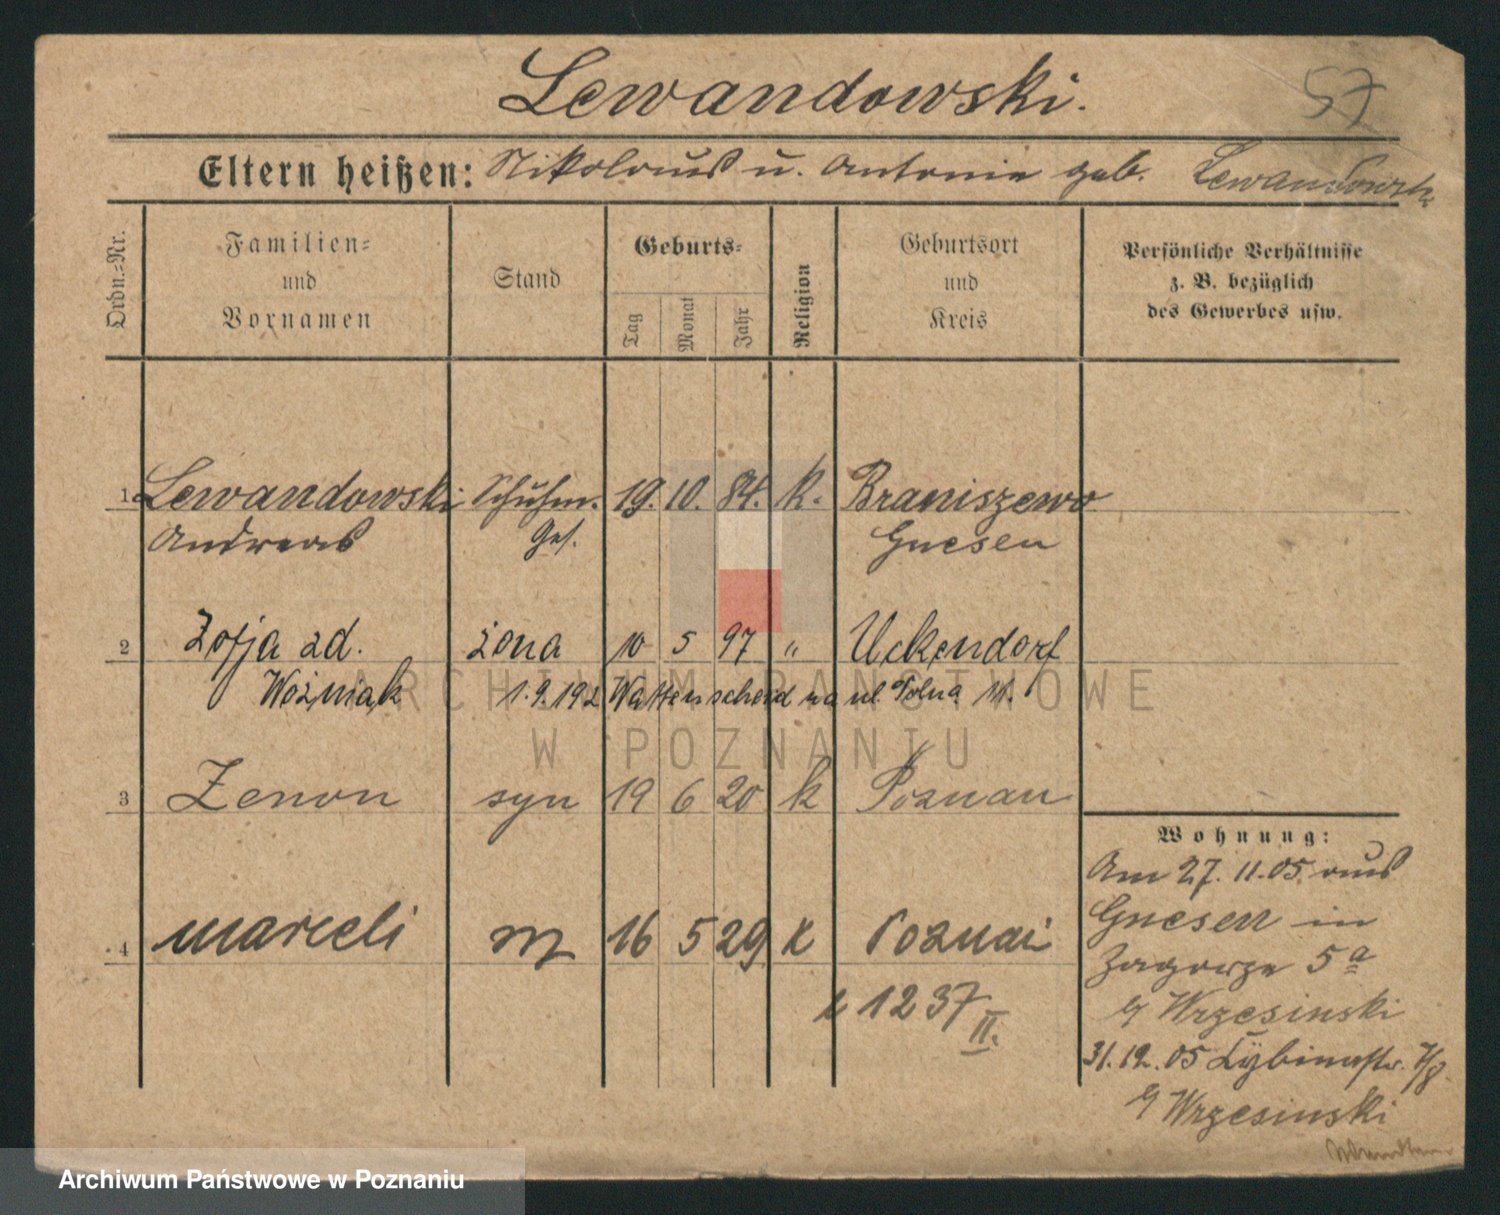 Lewandowski.
57
Eltern heißen: Nikolaus u. Antonie geb. Lewandowska
Ordn.=Nr.
Familien=
und
Vornamen
Stand
Geburts=
Tag
Monat
Jahr
Religion
Geburtsort
und
Kreis
Persönliche Verhältnisse
z. B. bezüglich
des Gewerbes usw.
1 Lewandowski Schuhm. 19. 10. 84. k. Braniszewo
Andreas Ges. Gnesen
2 Zofja zd. żona 10 5 97 " Uckendorf
Woźniak 1.9.192 Wattenscheid na ul. Polna 11.
ARCHIWUM PAŃSTWOWE
W POZNANIU
3 Zenon syn 19 6 20 k Poznan
4 Marceli 16 5 29 k Poznań
1237
II.
Wohnung:
Am 27. 11. 05 aus
Gnesen in
Zagorze 5a
Wrzesinski
31. 12. 05 Cybinastr. 7/8.
Wrzesinski
Archiwum Państwowe w Poznaniu